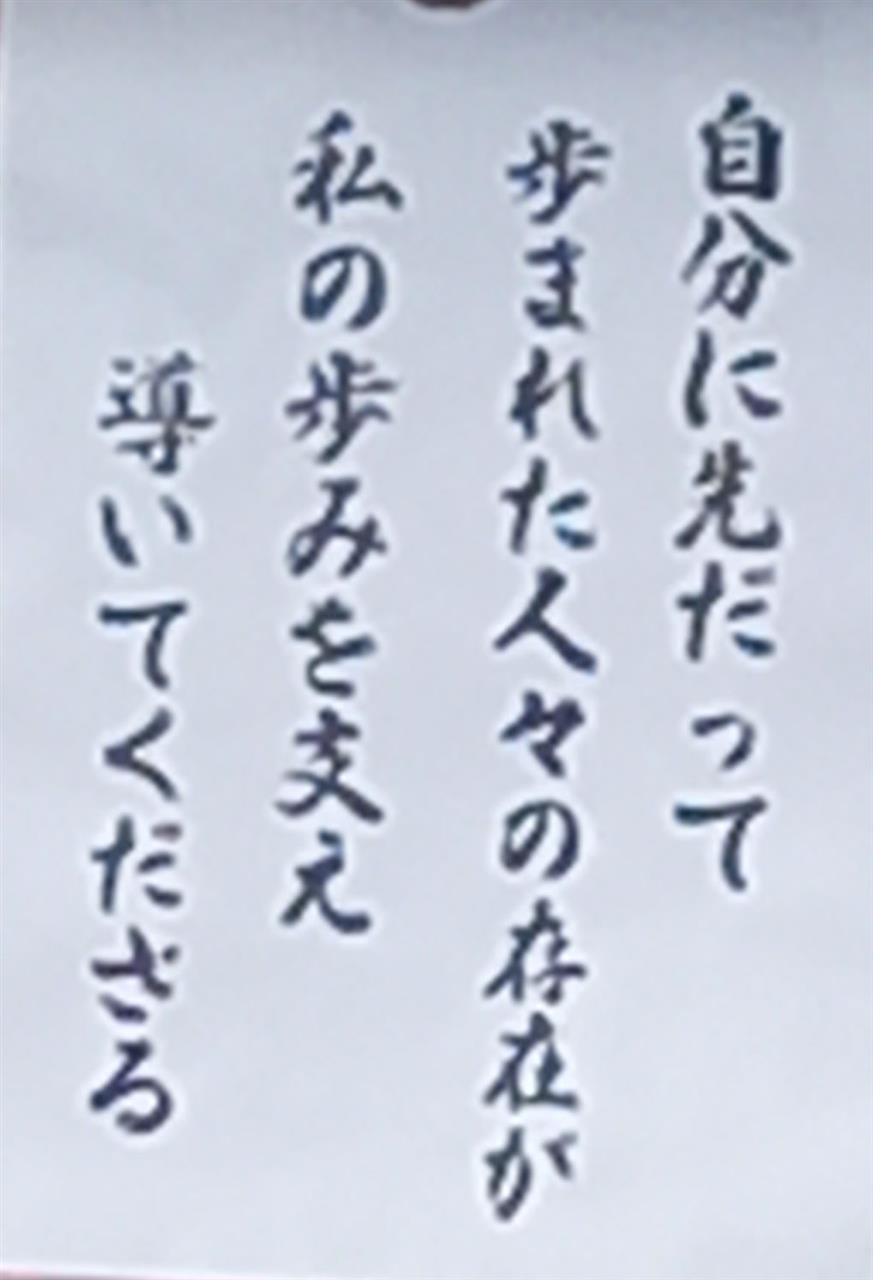 自分に先だって
歩まれた人々の存在が
私の歩みを支え
導いてくださる